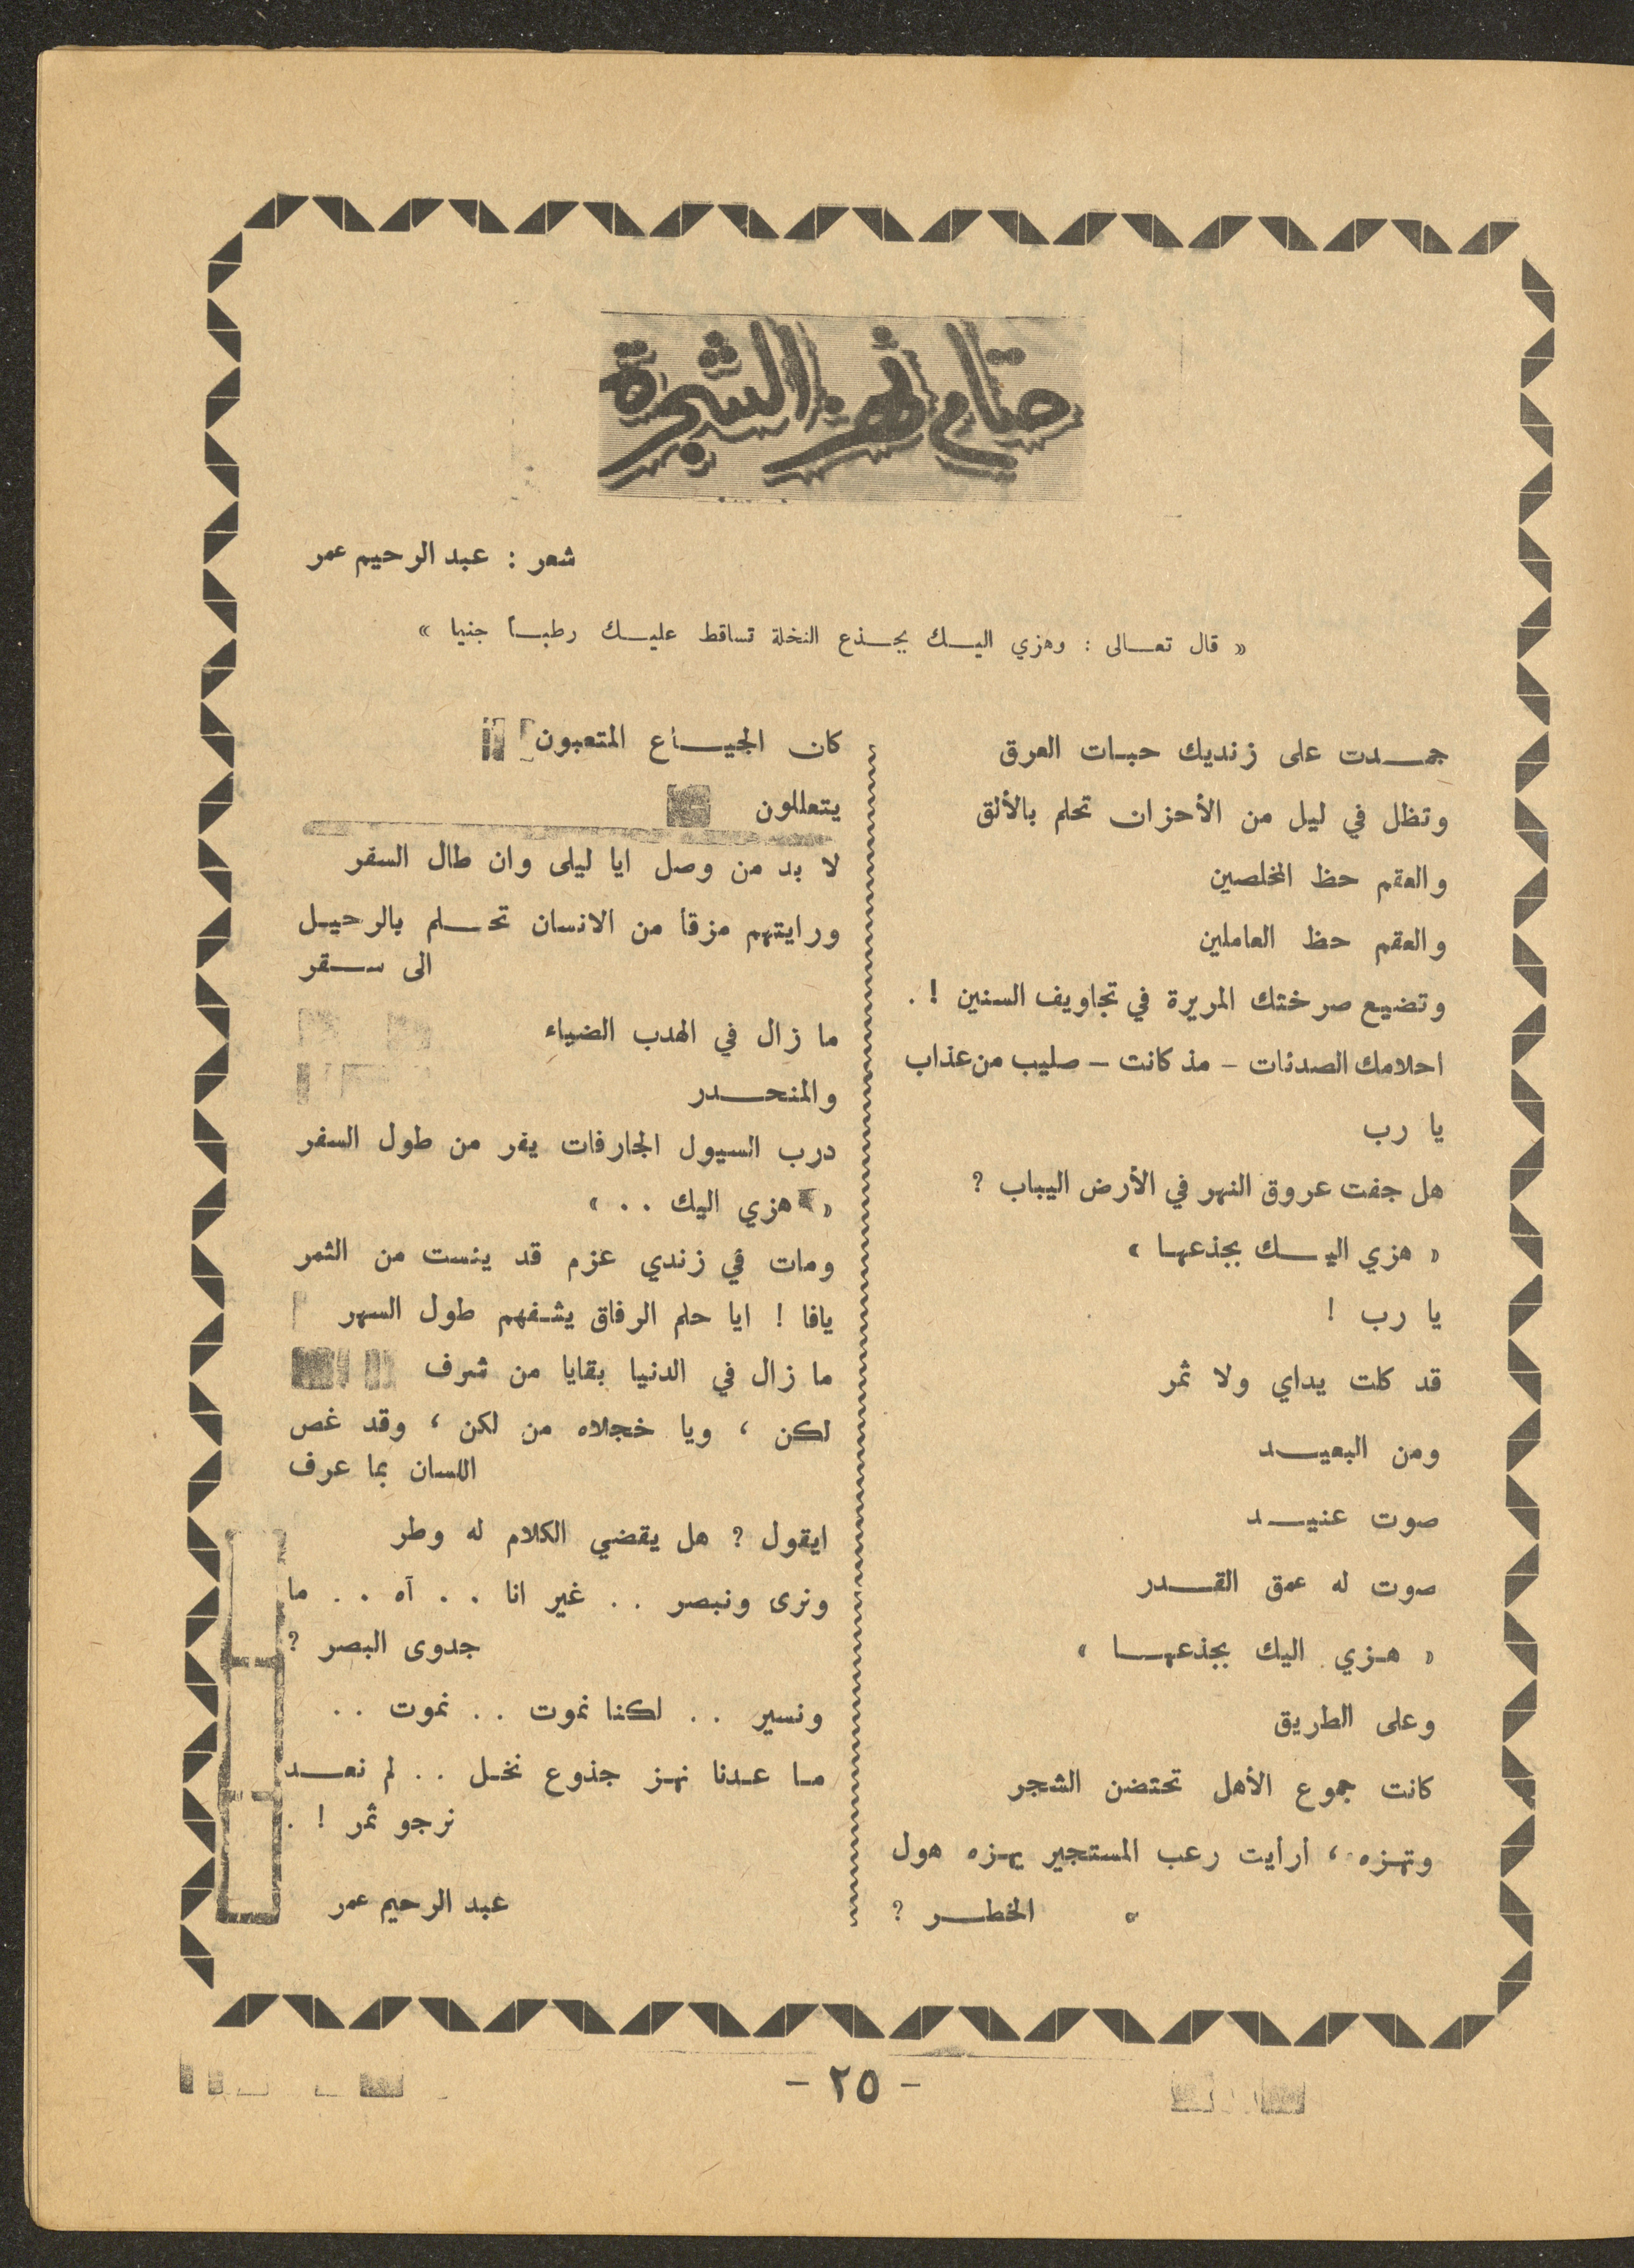 حتام نهز الشجرة
شعر : عبد الرحيم عمر
« قال تعالى : وهزي اليك بجذع النخلة تساقط عليك رطباً جنيا »
جمدت على زنديك حبات العرق
وتظل في ليل من الأحزان تحلم بالألق
والعقم حظ المخلصين
والعقم حظ العاملين
وتضيع صرختك المريرة في تجاويف السنين ! .
احلامك الصدئات – مذ كانت – صليب من عذاب
يا رب
هل جفت عروق النهر في الأرض اليباب ؟
« هزي اليك بجذعها »
يا رب !
قد كلت يداي ولا ثمر
ومن البعيد
صوت عنيد
صوت له عمق القدر
« هزي اليك بجذعها »
وعلى الطريق
كانت جموع الأهل تحتضن الشجر
وتهزه ، أرأيت رعب المستجير يهزه هول
الخطر ؟
كان الجياع المتعبون
يتعللون
لا بد من وصل ايا ليلى وان طال السفر
ورايتهم مزقاً من الانسان تحلم بالرحيل
الى سقر
ما زال في الهدب الضياء
والمنحدر
درب السيول الجارفات يفر من طول السفر
« هزي اليك . . »
ومات في زندي عزم قد ينست من الثمر
يافا ! ايا حلم الرفاق يشفهم طول السهر
ما زال في الدنيا بقايا من شرف
لكن ، ويا خجلاه من لكن ، وقد غص
اللسان بما عرف
ايقول ؟ هل يقضي الكلام له وطر
ونرى ونبصر . . غير انا . . آه . . ما
جدوى البصر ؟
ونسير . . لكنا نموت . . نموت . .
ما عدنا نهز جذوع نخل . . لم نعد
نرجو ثمر ! .
عبد الرحيم عمر
– ٢٥ –